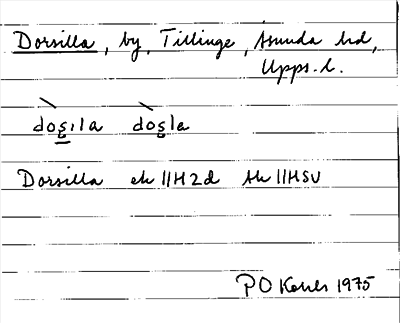 Dorsilla, by, Tillinge, Åsunda hd,
Upps. l.
doşıla doşla
Dorsilla ek 11H2d tk 11HSV
P O 1975